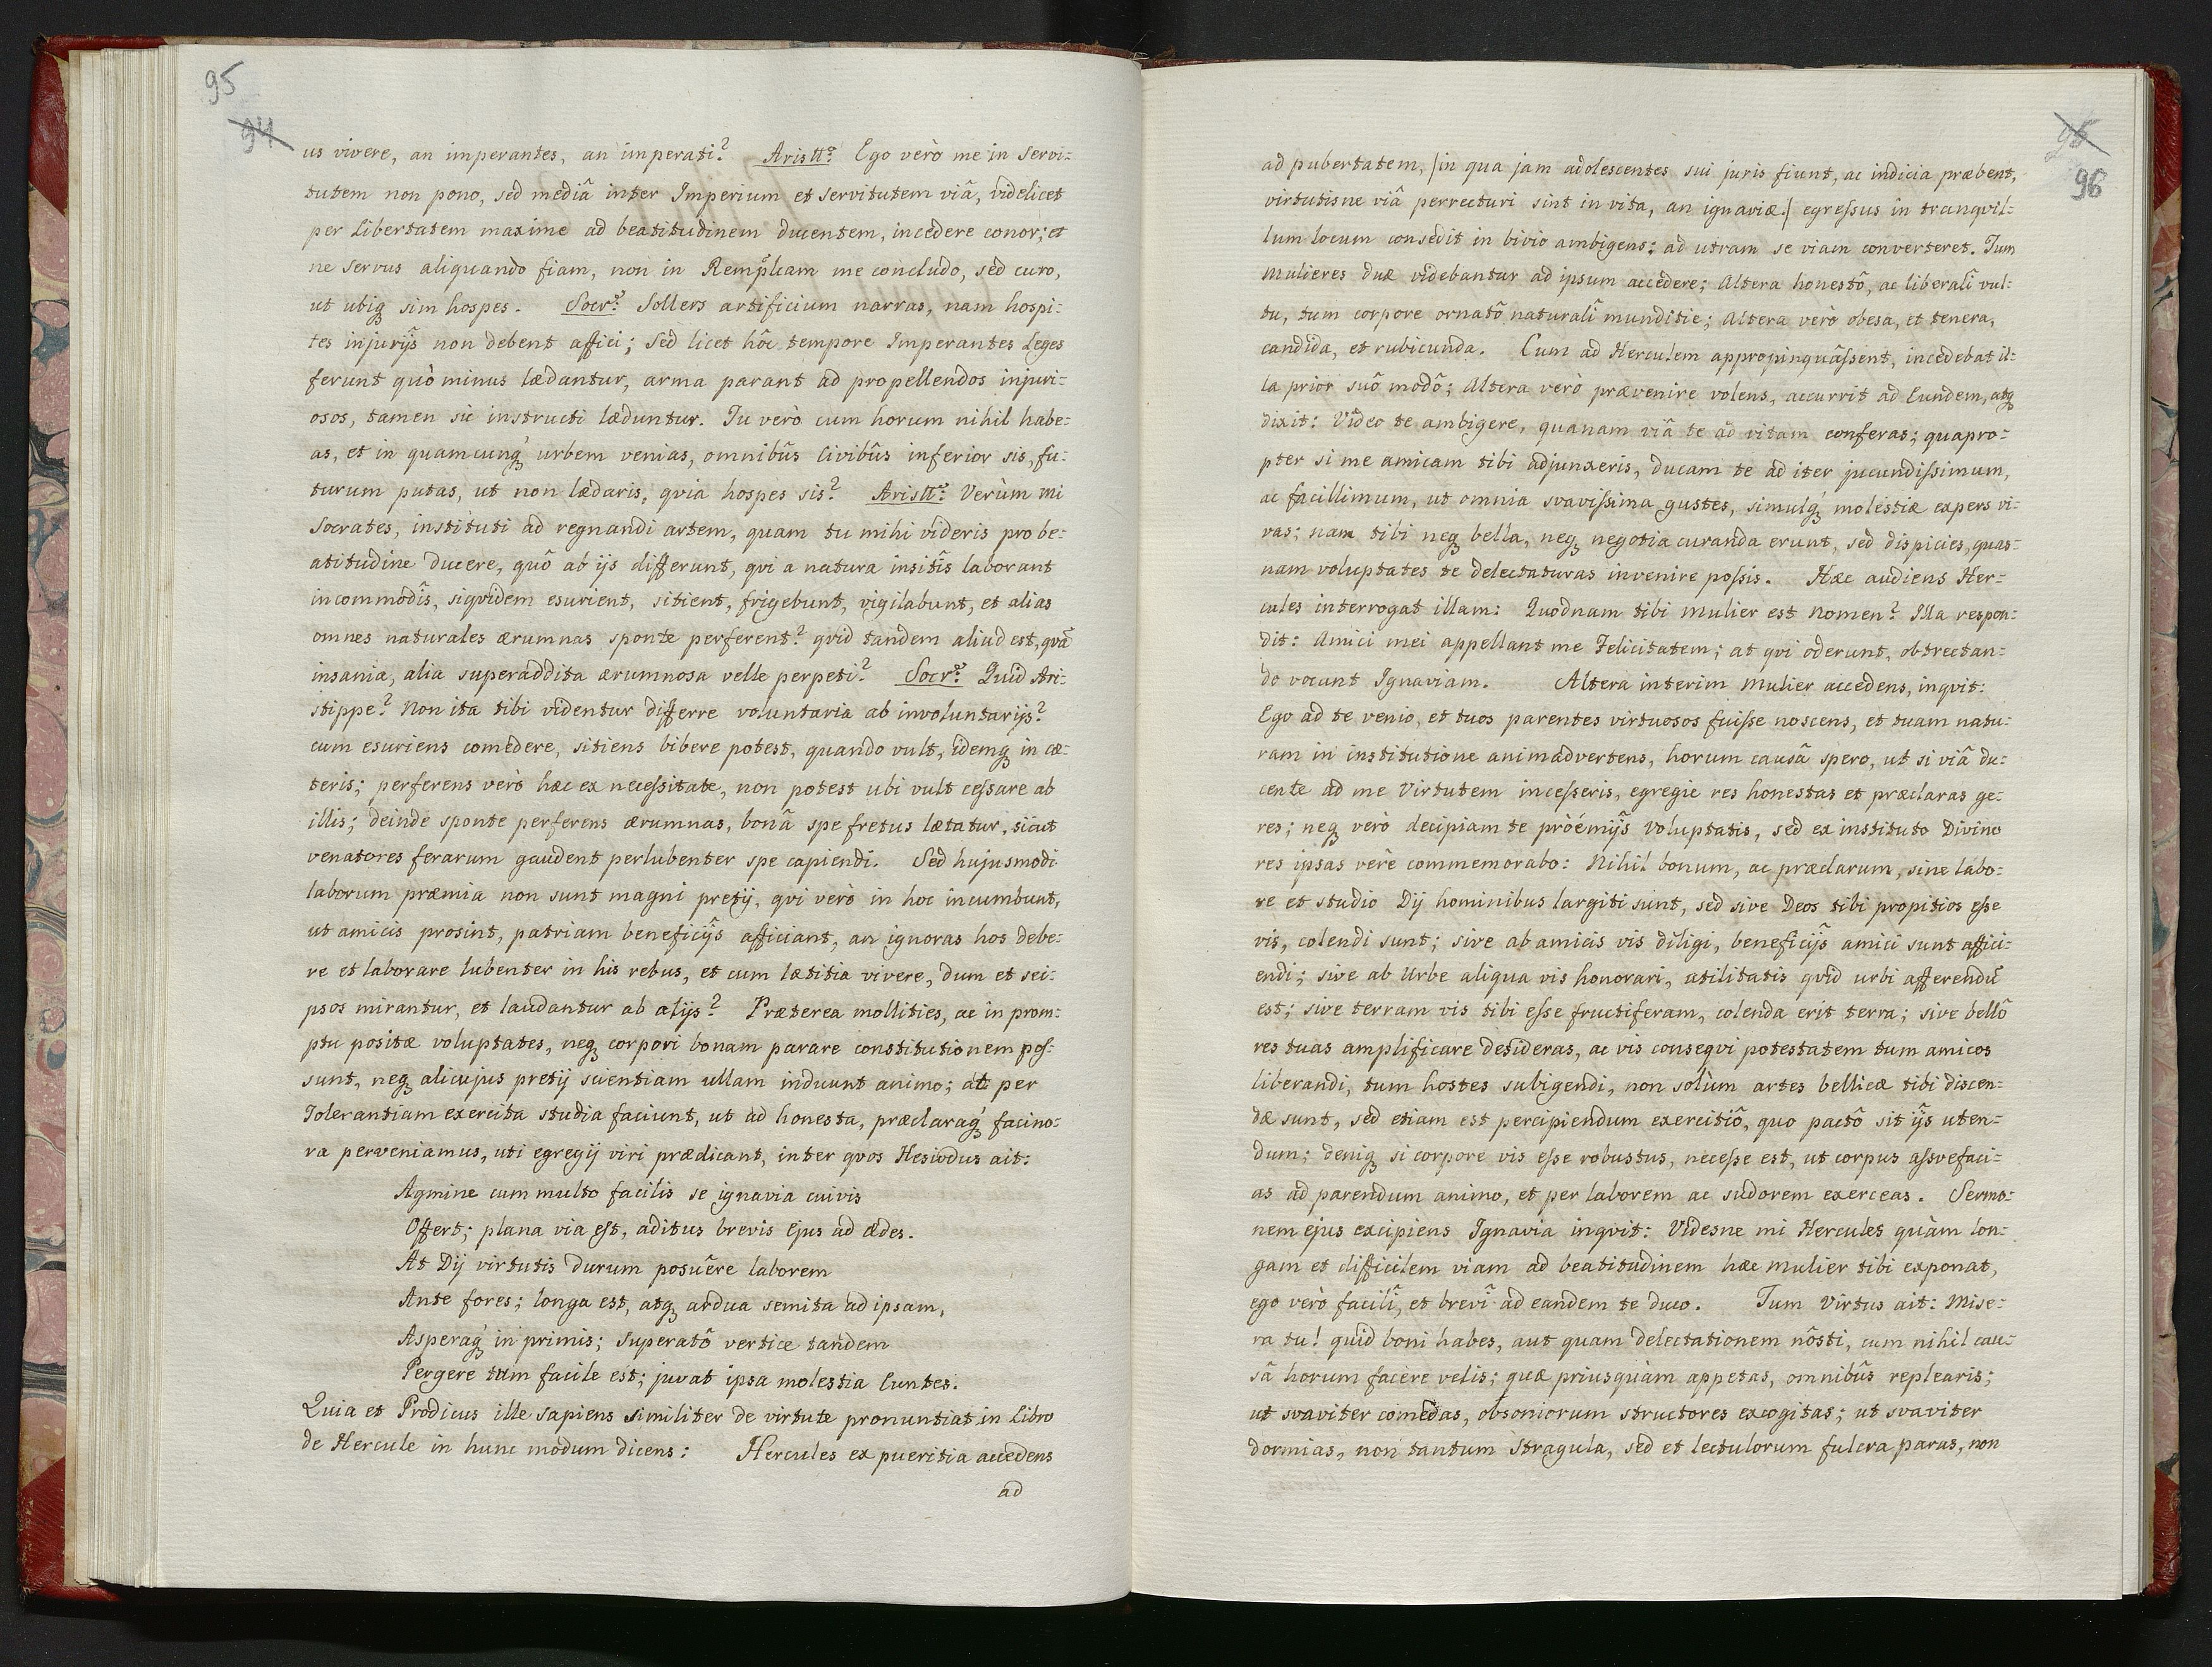 95
94
us vivere, an imperantes, an imperati? Aristt: Ego verò me in servi:
tutem non pono, sed mediâ inter Imperium et servitutem viâ, videlicet
per Libertatem maxime ad beatitudinem ducentem, incedere conor; et
ne servus aliquando fiam, non in Rempḷcam me concludo, sed curo,
ut ubiq́ sim hospes. Socr: Sollers artificium narras, nam hospi:
tes injurijs̃ non debent affici; Sed licet hôc tempore Imperantes Leges
ferunt quò minus lædantur, arma parant ad propellendos injuri:
osos, tamen sic instructi læduntur. Tu verò cum horum nihil habe:
as, et in quamcunq́ urbem venias, omnibûs Civibûs inferior sis, fu:
turum putas, ut non lædaris, qvia hospes sis? Aristt: Verùm mi
Socrates, instituti ad regnandi artem, quam tu mihi videris pro be:
atitudine ducere, quô ab ijs differunt, qvi a natura insitîs laborant
incommodîs, siqvidem esurient, sitient, frigebunt, vigilabunt, et alias
omnes naturales ærumnas sponte perferent? qvid tandem aliud est, qvã
insania, alia superaddita ærumnosa velle perpeti? Socr: Quid Ari:
stippe? Non ita tibi videntur differre voluntaria ab involuntarijs?
cum esuriens comedere, sitiens bibere potest, quando vult, idemq́ in cæ:
teris; perferens verò hæc ex necessitate, non potest ubi vult cessare ab
illis; deinde sponte perferens ærumnas, bonâ spe fretus lætatur, sicut
venatores ferarum gaudent perlubenter spe capiendi. Sed hujusmodi
laborum præmia non sunt magni pretij, qvi verò in hoc incumbunt,
ut amicis prosint, patriam beneficijs̃ afficiant, an ignoras hos debe:
re et laborare lubenter in his rebus, et cum lætitia vivere, dum et sei:
psos mirantur, et laudantur ab alijs? Præterea mollities, ac in prom:
ptu positæ voluptates, neq́ corpori bonam parare constitutionem pos:
sunt, neq́ alicujus pretij scientiam ullam induunt animo; at per
Tolerantiam exercita studia faciunt, ut ad honesta, præclaraq́ facino:
ra perveniamus, uti egregij viri prædicant, inter qvos Hesiodus ait:
Agmine cum multo facilis se ignavia cuivis
Offert; plana via est, aditus brevis Ejus ad ædes.
At Dij virtutis durum posuêre laborem
Ante fores; longa est, atq́ ardua semita ad ipsam,
Asperaq́ in primis; superatô vertice tandem
Pergere tum facile est; juvat ipsa molestia Euntes.
Quia et Prodicus ille sapiens similiter de virtute pronuntiat in Libro
de Hercule in hunc modum dicens: Hercules ex pueritia accedens
ad
95
96
ad pubertatem, /in qua jam adolescentes sui juris fiunt, ac indicia præbent,
virtutisne viâ perrecturi sint in vita, an ignaviæ./ egressus in tranqvil:
lum locum consedit in bivio ambigens: ad utram se viam converteret. Tum
Mulieres duæ videbantur ad ipsum accedere; Altera honestô, ac liberalî vul:
tu, tum corpore ornatô naturalî munditie; Altera verò obesa, et tenera,
candida, et rubicunda. Cum ad Herculem appropinquâssent, incedebat il:
la prior suô modô; Altera verò prævenire volens, accurrit ad Eundem, atq́
dixit: Video te ambigere, quanam viâ te ad vitam conferas; quapro:
pter si me amicam tibi adjunxeris, ducam te ad iter jucundissimum,
ac facillimum, ut omnia svavissima gustes, simulq́ molestiæ expers vi:
vas; nam tibi neq́ bella, neq́ negotia curanda erunt, sed dispicies, quas:
nam voluptates te delectaturas invenire possis. Hæc audiens Her:
cules interrogat illam: Quodnam tibi Mulier est Nomen? Illa respon:
dit: Amici mei appellant me Felicitatem; at qvi oderunt, obtrectan:
do vocant Ignaviam. Altera interim Mulier accedens, inqvit:
Ego ad te venio, et tuos parentes virtuosos fuisse noscens, et tuam natu:
ram in institutione animadvertens, horum causâ spero, ut si viâ du:
cente ad me Virtutem incesseris, egregie res honestas et præclaras ge:
res; neq́ verò decipiam te pròémijs̃ Voluptatis, sed ex instituto Divino
res ipsas verè commemorabo: Nihil bonum, ac præclarum, sine labo:
re et studio Dij hominibus largiti sunt, sed sive Deos tibi propitios esse
vis, colendi sunt; sive ab amicis vis diligi, beneficijs̃ amici sunt affici:
endi; sive ab Urbe aliqua vis honorari, utilitatis qvid urbi afferendũ
est; sive terram vis tibi esse fructiferam, colenda erit terra; sive bellô
res tuas amplificare desideras, ac vis conseqvi potestatem tum amicos
liberandi, tum hostes subigendi, non solùm artes bellicæ tibi discen:
dæ sunt, sed etiam est percipiendum exercitiô, quo pactô sit ijs̃ uten:
dum; deniq́ si corpore vis esse robustus, necesse est, ut corpus assvefaci:
as ad parendum animo, et per laborem ac sudorem exerceas. Sermo:
nem ejus excipiens Ignavia inqvit: Videsne mi Hercules quàm lon:
gam et difficilem viam ad beatitudinem hæc Mulier tibi exponat,
ego verò facilî, et brevî ad eandem te duco. Tum Virtus ait: Mise:
ra tu! quid boni habes, aut quam delectationem nôsti, cum nihil cau:
sâ horum facere velis; quæ priusquàm appetas, omnibûs replearis;
ut svaviter comedas, obsoniorum structores excogitas; ut svaviter
dormias, non tantum stragula, sed et lectulorum fulcra paras, non